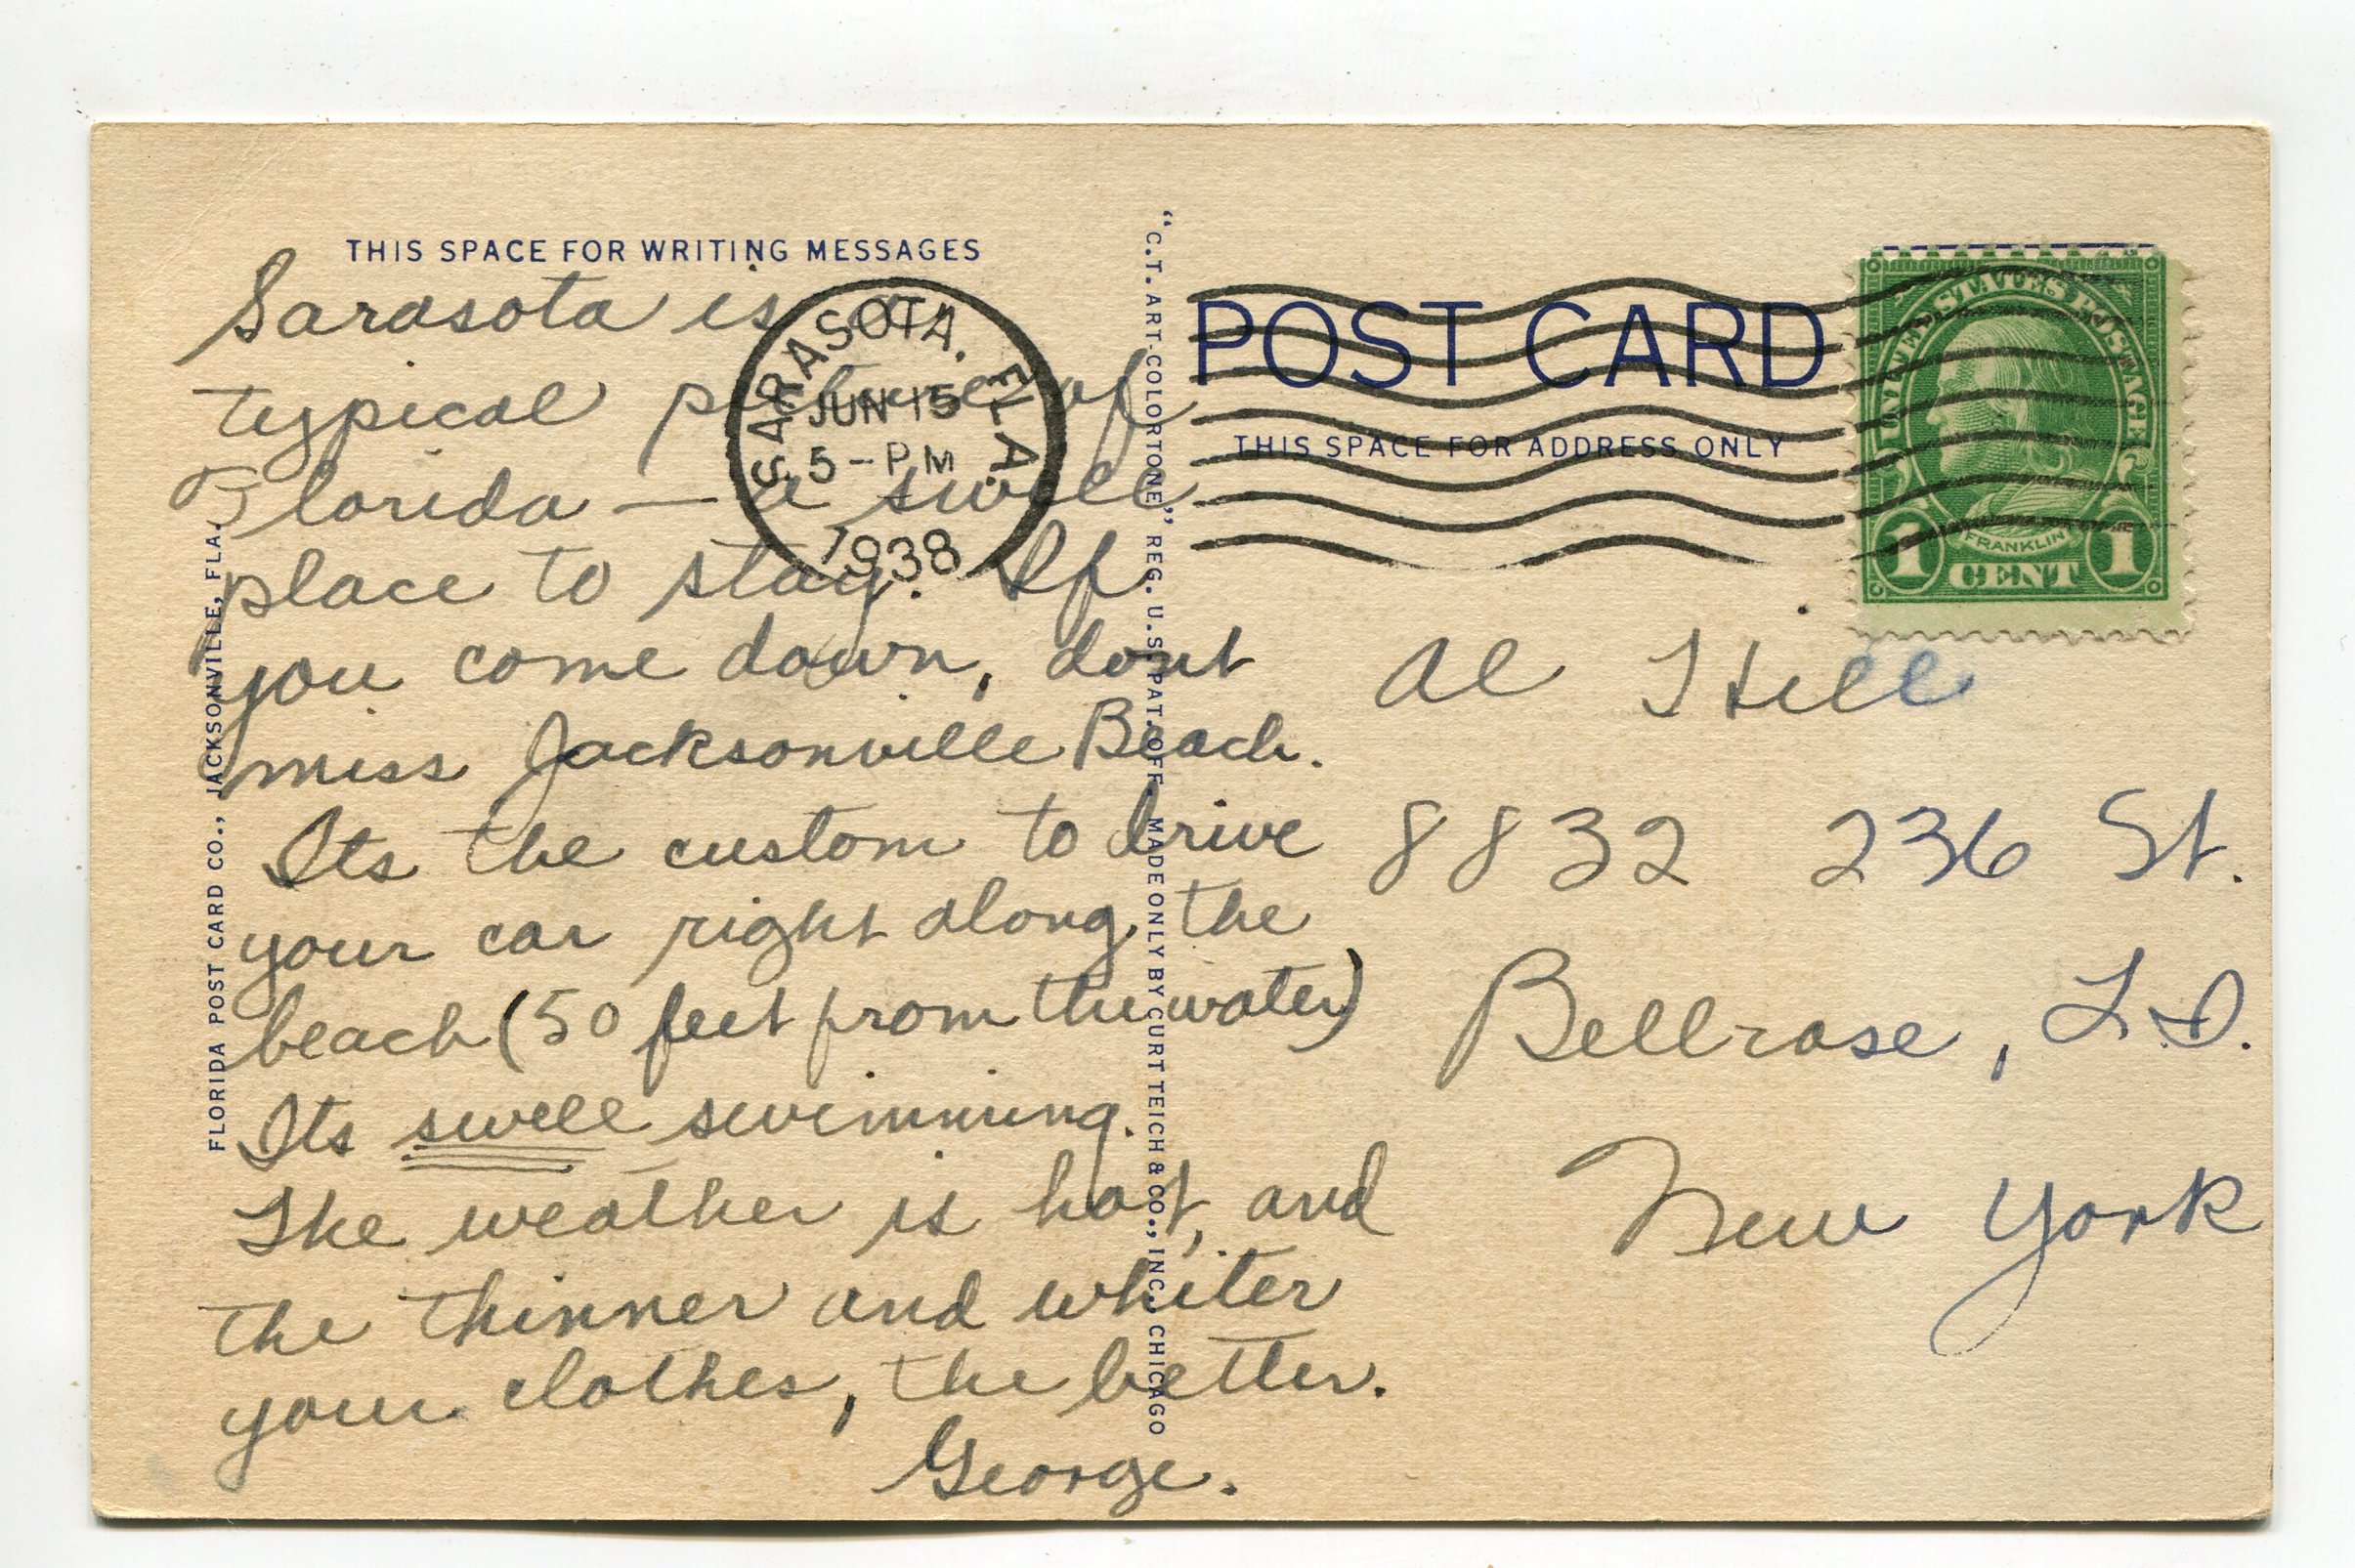 THIS SPACE FOR WRITING MESSAGES
Sarasota is a
typical picture of
Florida — a swell
place to stay. If
you come down, dont
miss Jacksonville Beach.
Its the custom to drive
your car right along the
beach (50 feet from the water)
Its swell swimming.
The weather is hot, and
the thinner and whiter
your clothes, the better.
George.
FLORIDA POST CARD CO., JACKSONVILLE, FLA.
SARASOTA, FLA.
JUN 15
5-PM
1938
"C.T. ART-COLORTONE" REG. U.S. PAT. OFF. MADE ONLY BY CURT TEICH & CO., INC., CHICAGO
POST CARD
THIS SPACE FOR ADDRESS ONLY
UNITED STATES POSTAGE
FRANKLIN
1 CENT 1
Al Hill
8832 236 St.
Bellrose, L.I.
New York